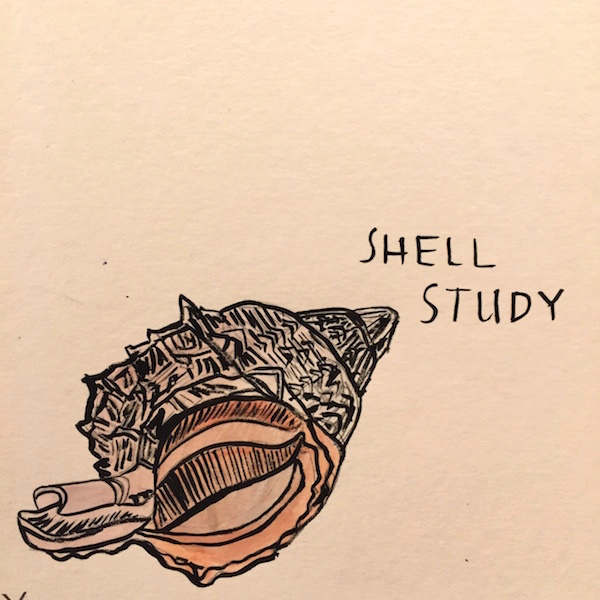 SHELL
STUDY